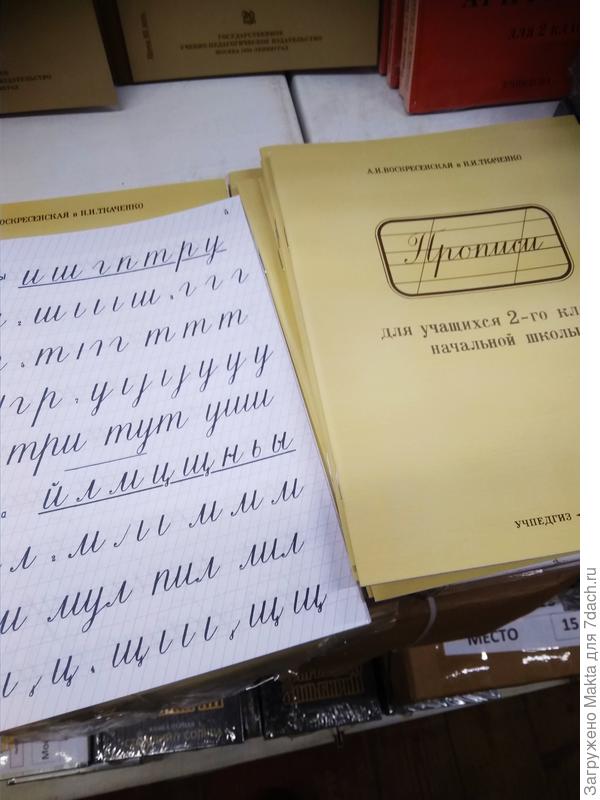 ГОСУДАРСТВЕННОЕ
УЧЕБНО-ПЕДАГОГИЧЕСКОЕ ИЗДАТЕЛЬСТВО
ДЛЯ 2 КЛ
УЧПЕДГИЗ
ОСКРЕСЕНСКАЯ и Н.И.ТКАЧЕНКО
4
и ш г п т р у
ш ı ı ı ш , г г г
т ı г г т т т
г р , у ı ȷ ı ȷ у у у
три тут уши
й л м ц щ н ь ы
л , м л ı ı м м м
мул пил лил
ц , щ ı ı ı , щ щ
А.И.ВОСКРЕСЕНСКАЯ и Н.И.ТКАЧЕНКО
Прописи
для учащихся 2-го кл
начальной школы
УЧПЕДГИЗ
МЕСТО
15
Загружено Makta для 7dach.ru